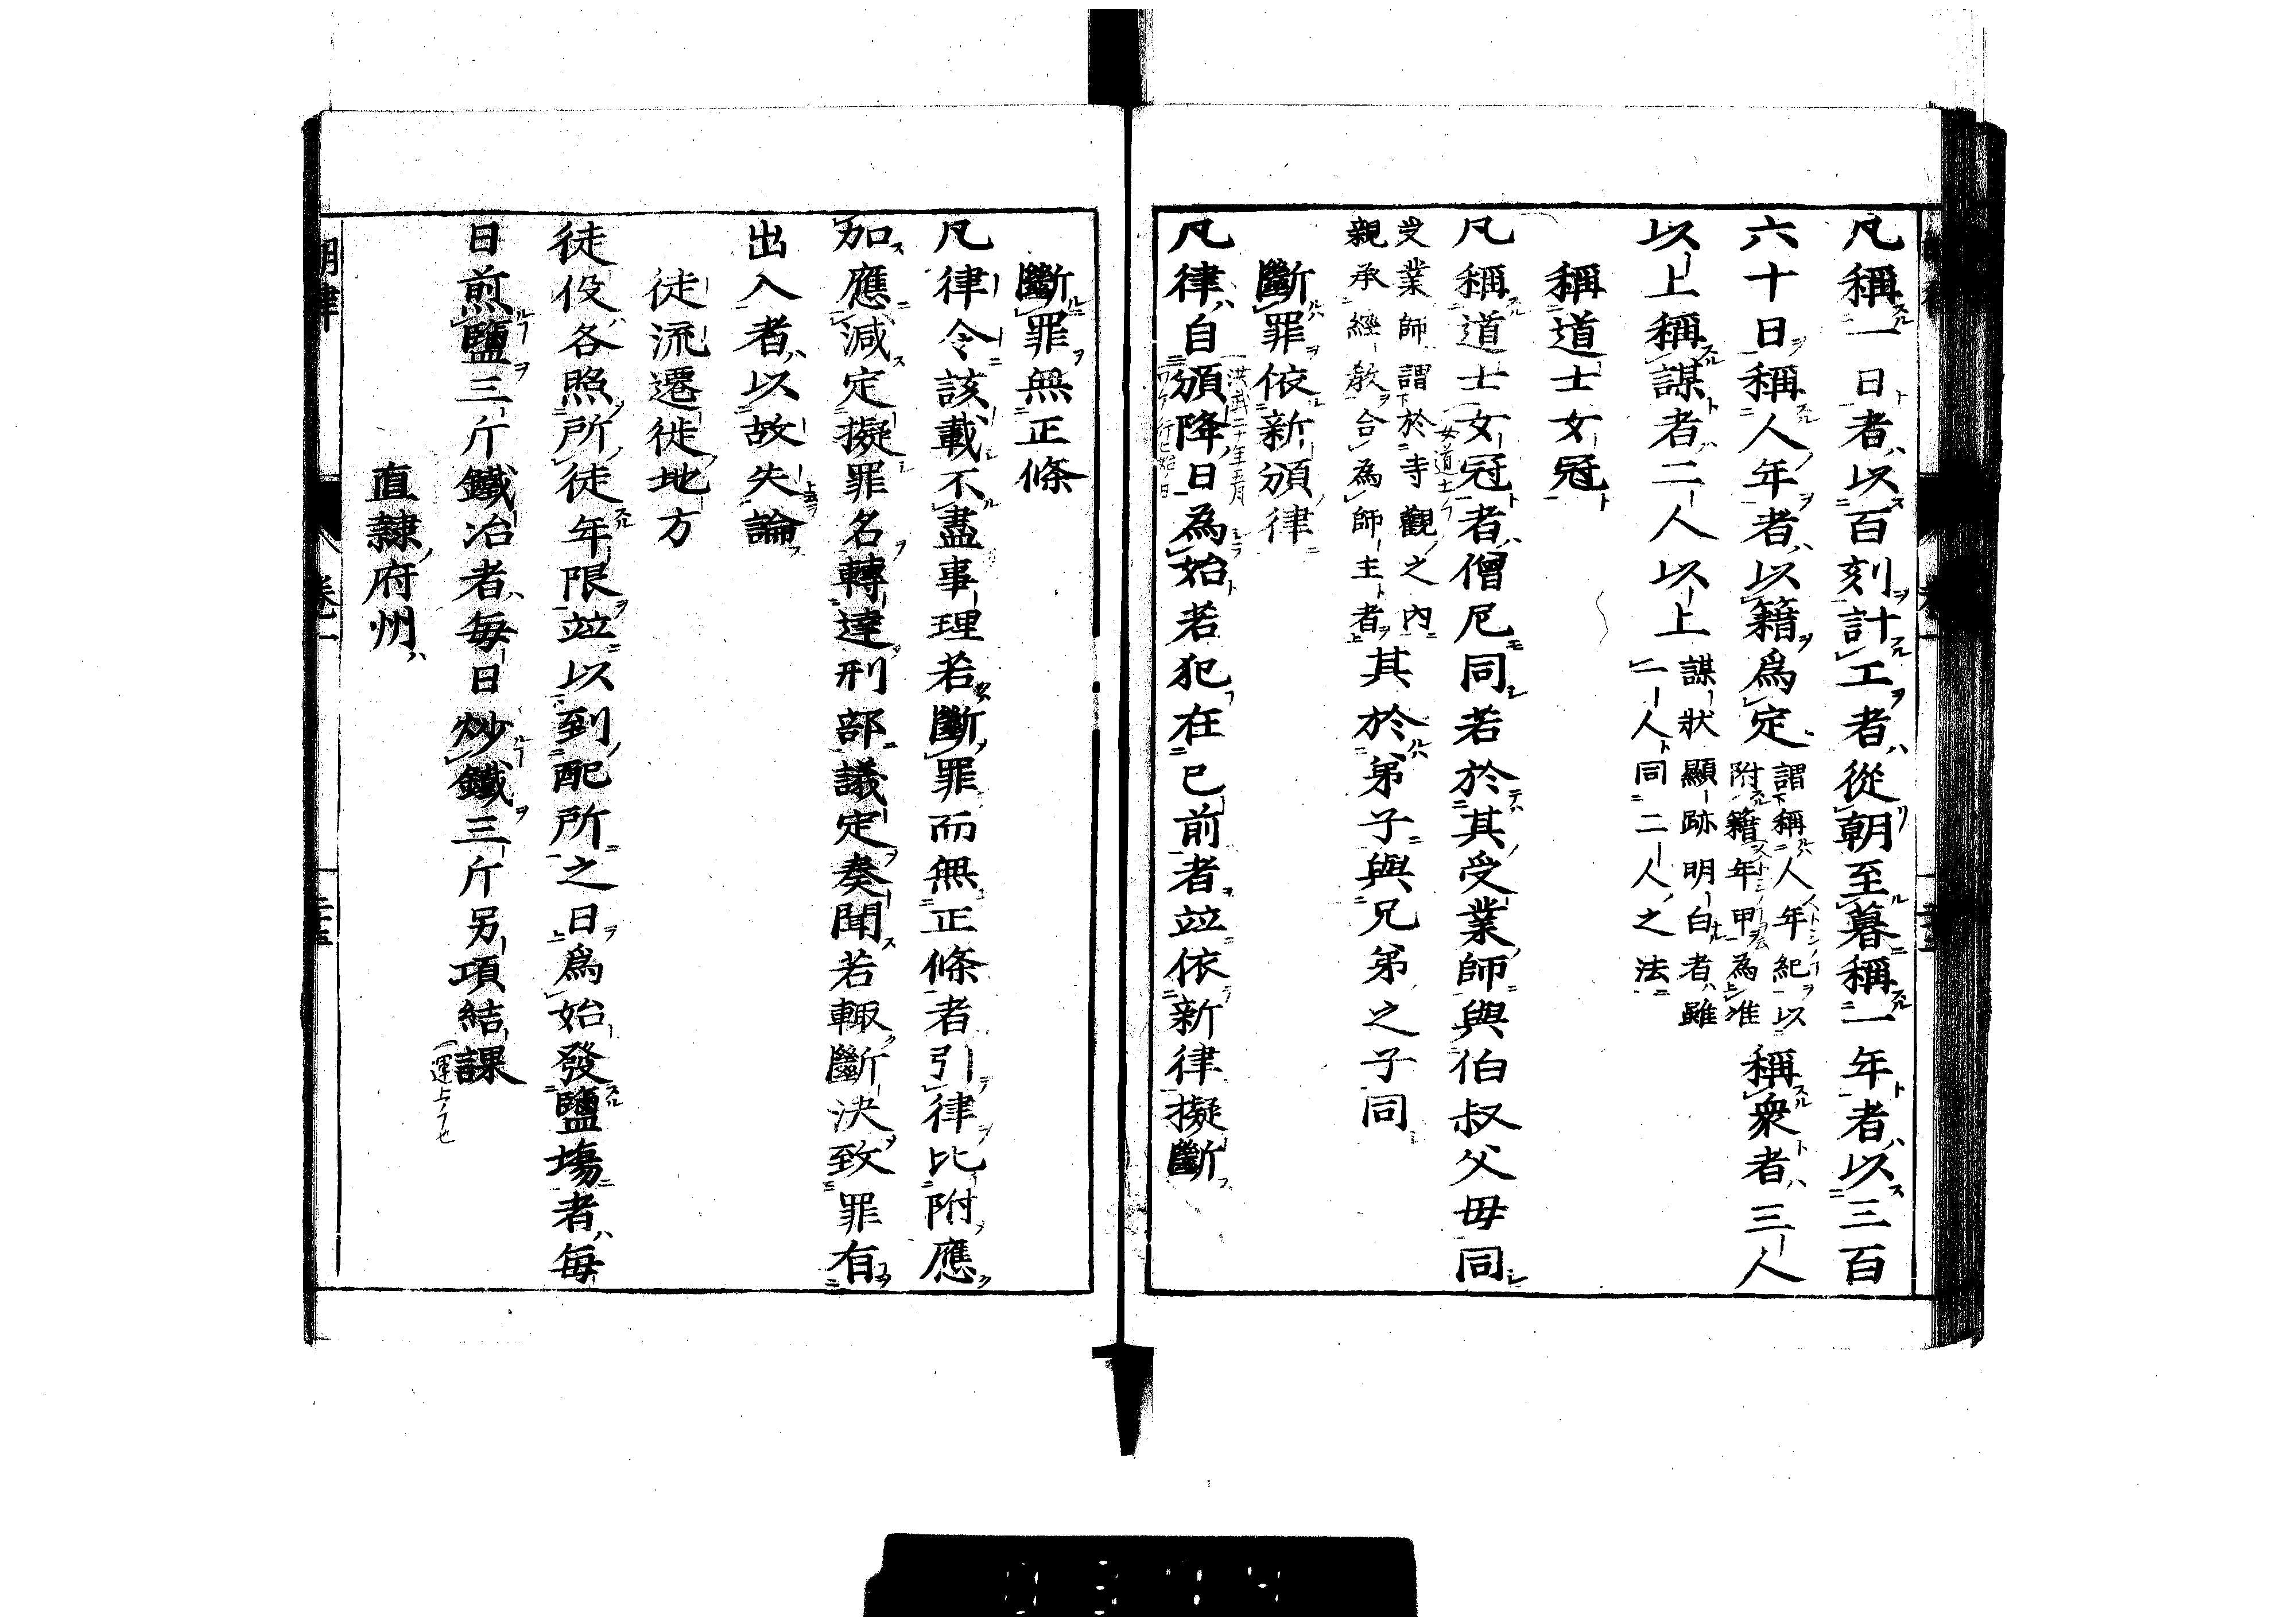 凡稱一日者以百刻計工者從朝至暮稱一年者以三百
六十日稱人年者以籍爲定謂稱人年紀以附籍年甲為准稱衆者三人
以上稱謀者二人以上謀狀顯跡明白者雖一人同二人之法
稱道士女冠
凡稱道士女冠者僧尼同若於其受業師與伯叔父毋同
受業師謂於寺觀之內親承經教合為師主者其於弟子與兄弟之子同
斷罪依新頒律
凡律自頒降日為始若犯在已前者竝依新律擬斷
斷罪無正條
凡律令該載不盡事理若斷罪而無正條者引律比附應
加應減定擬罪名轉達刑部議定奏聞若輙斷決致罪有
出入者以故失論
徒流遷徙地方
徒役各照所徒年限竝以到配所之日爲始發鹽塲者每
日煎鹽三斤鐵冶者每日炒鐵三斤另項結課
直隸府州